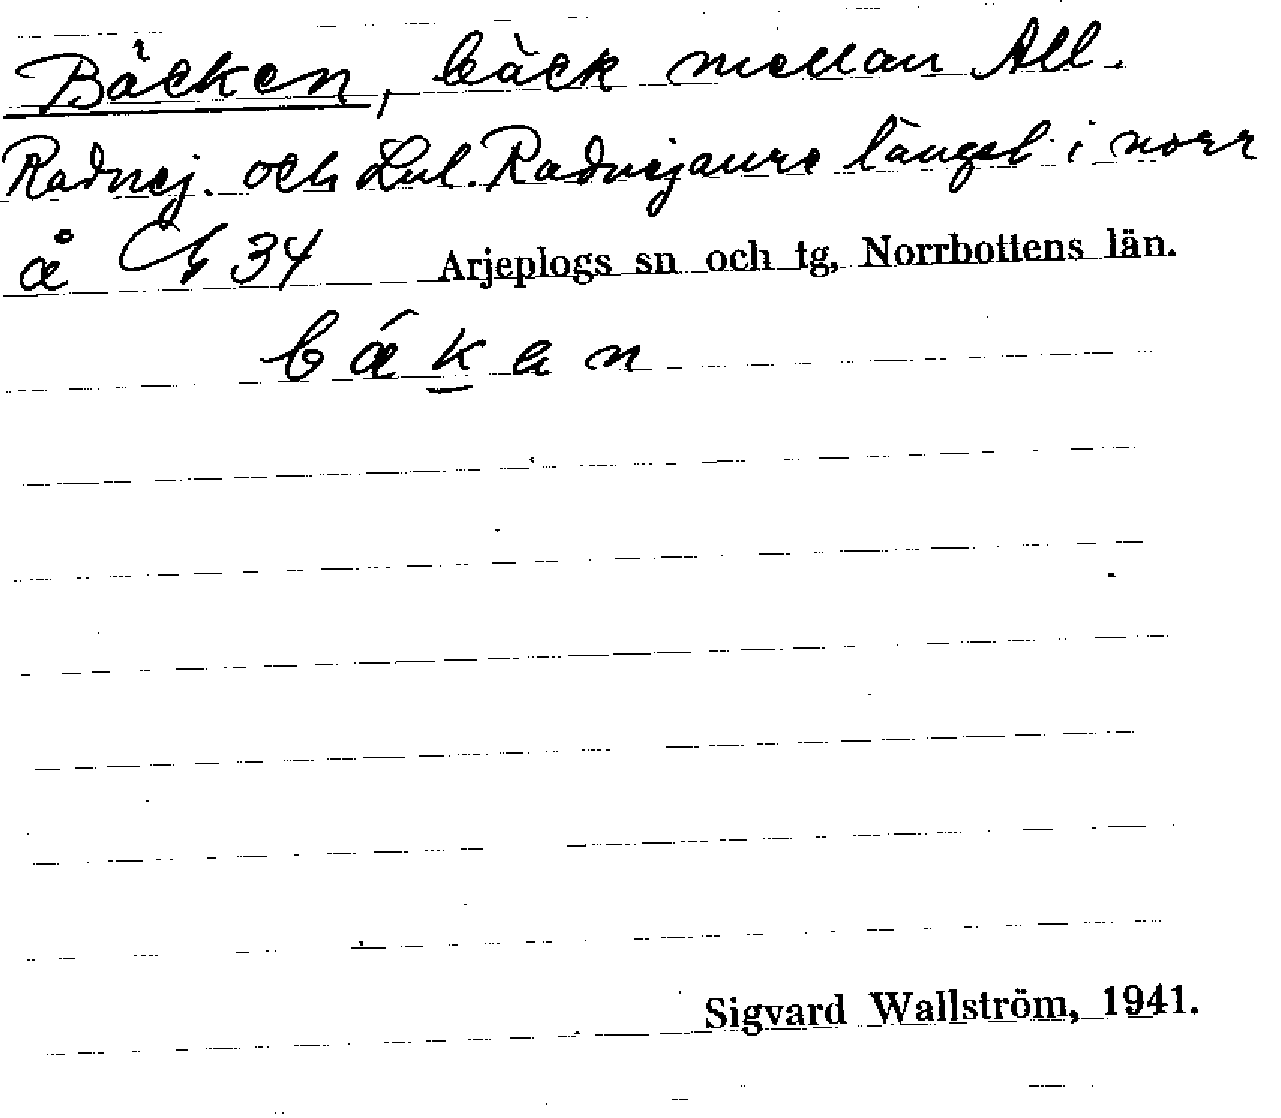 Bäcken, bäck mellan All.
Radnej. och Lul. Radnejaure längst i norr
å G 34 Arjeplogs sn och tg, Norrbottens län.
bǽkan
Sigvard Wallström, 1941.